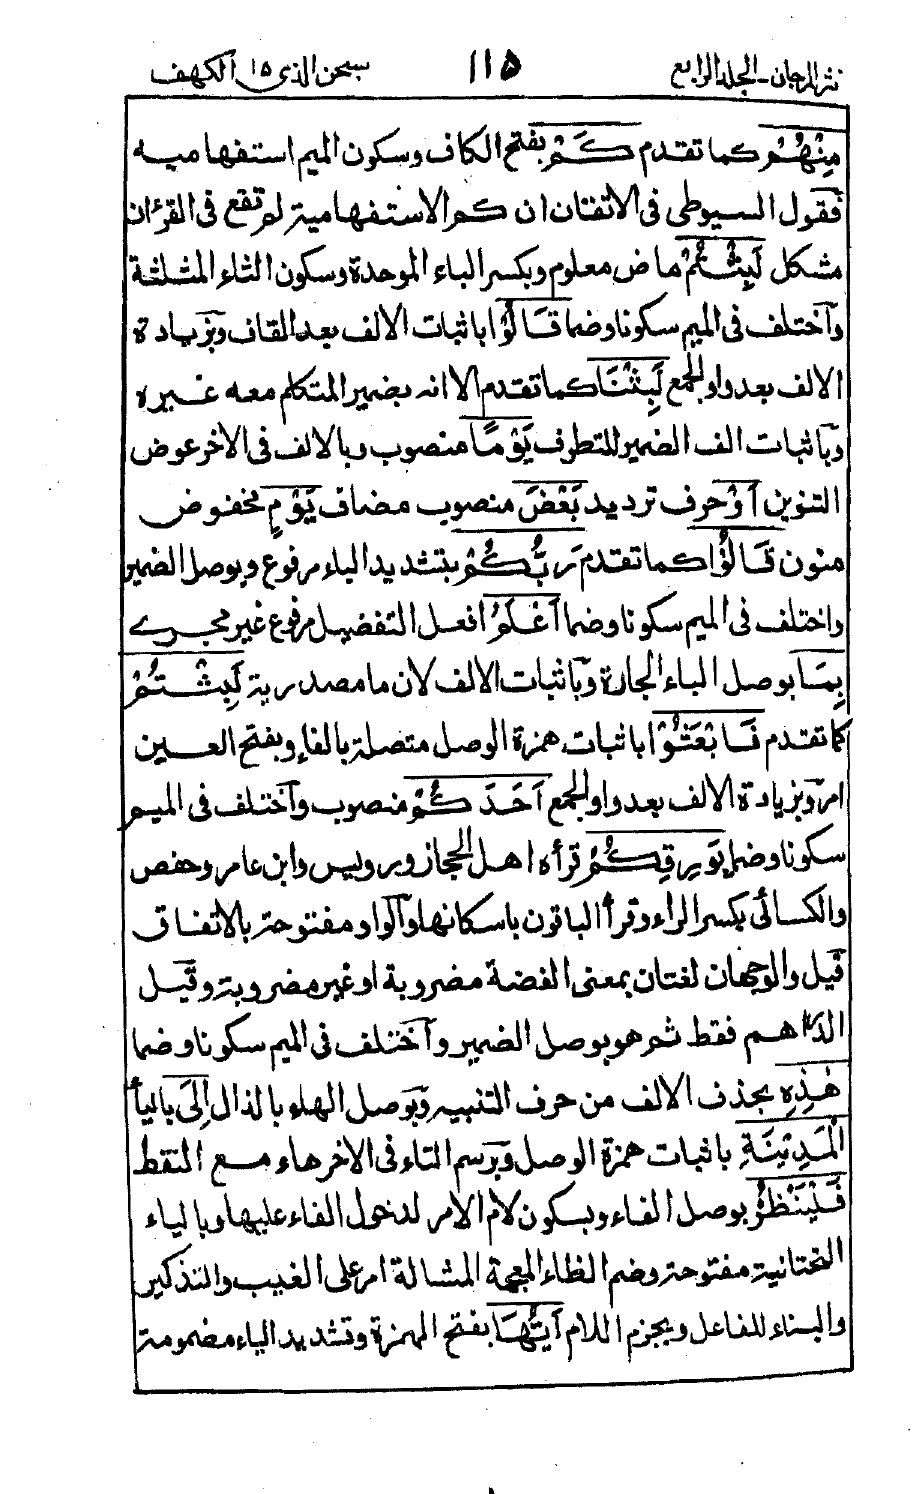 نثر المرجان-الجلد الرابع ١١٥ سبحن الذى ١٥ الكهف
مِنْهُمْ كما تقدم كَمْ بفتح الكاف وسكون الميم استفهاميه
فقول السيوطى فى الاتقان ان كم الاستفهامية لم تقع فى القرءان
مشكل لَبِثْتُمْ ماض معلوم وبكسر الباء الموحدة وسكون الثاء المثلثة
واختلف فى الميم سكونا وضما قَالُوْا باثبات الالف بعد القاف وبزيادة
الالف بعد واو الجمع لَبِثْنَا كما تقدم الا انه بضمير المتكلم معه غيره
وباثبات الف الضمير للتطرف يَوْمًا منصوب وبالالف فى الاخر عوض
التنوين اَوْ حرف ترديد بَعْضَ منصوب مضاف يَوْمٍ مخفوض
منون قَالُوْا كما تقدم رَبُّكُمْ بتشديد الباء مرفوع وبوصل الضمير
واختلف فى الميم سكونا وضما اَعْلَمُ افعل التفضيل مرفوع غير مجرى
بِمَا بوصل الباء الجارة وباثبات الالف لان ما مصدرية لَبِثْتُمْ
كما تقدم فَابْعَثُوْا باثبات همزة الوصل متصلة بالفاء وبفتح العين
امر وبزيادة الالف بعد واو الجمع اَحَدَكُمْ منصوب واختلف فى الميم
سكونا وضما بِوَرِقِكُمْ قرأه اهل الحجاز ورويس وابن عامر وحفص
والكسائى بكسر الراء وقرأ الباقون باسكانها والواو مفتوحة بالاتفاق
قيل والوجهان لغتان بمعنى الفضة مضروبة او غير مضروبة وقيل
الدراهم فقط ثم هو بوصل الضمير واختلف فى الميم سكونا وضما
هٰذِهِ بحذف الالف من حرف التنبيه وبوصل الهاء بالذال اِلَى بالياء
الْمَدِيْنَةِ باثبات همزة الوصل وبرسم التاء فى الاخر هاء مع النقط
فَلْيَنْظُرْ بوصل الفاء وبسكون لام الامر لدخول الفاء عليها وبالياء
التحتانية مفتوحة وضم الظاء المعجمة المشالة امر على الغيب والتذكير
والبناء للفاعل وبجزم اللام اَيُّهَا بفتح الهمزة وتشديد الياء مضمومة